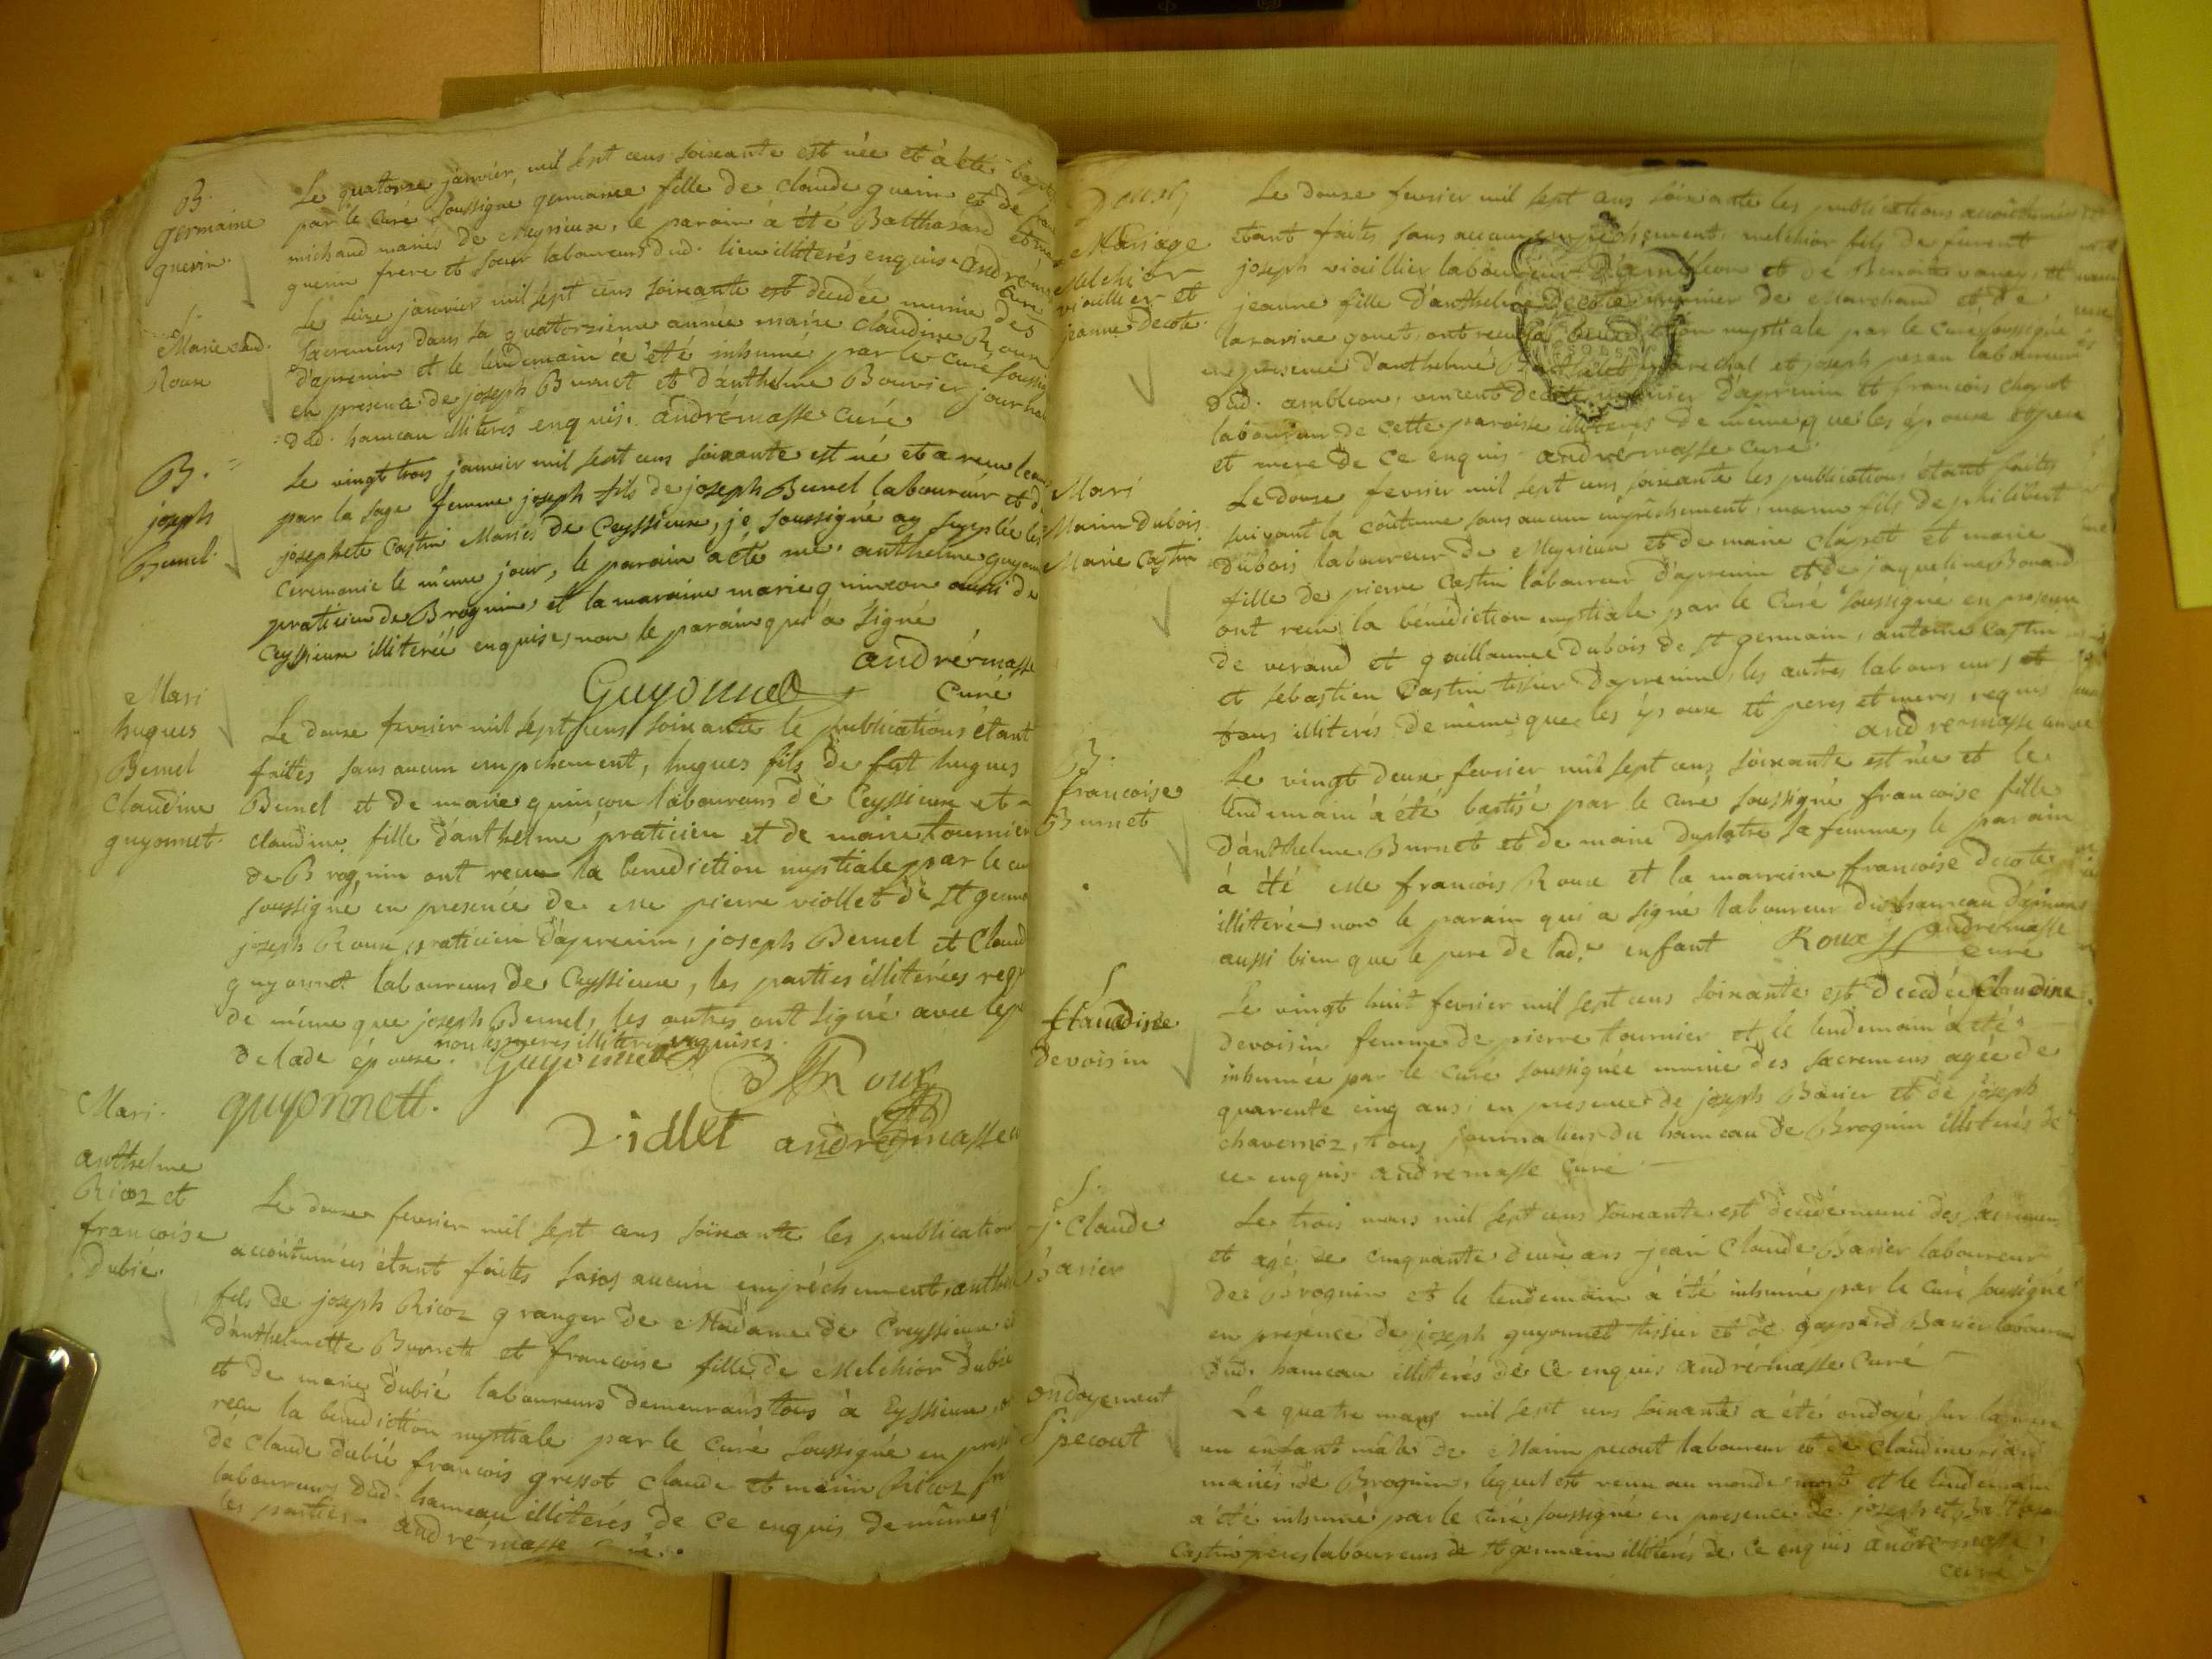 B.
germaine
guerin
Le quatorze janvier, mil sept cens soixante est née et à été bapt
par le curé soussigné germaine fille de claude guerin et de
michaud mariés de Meyrieux, le parain à été Balthasard
guerin frere et soeur laboureurs dud. lieu illiterés enquis. andrémasse
curé
S.
Marie claud.
Roux
Le seize janvier mil sept cens soixante est decedée munie des
sacremens dans sa quatorzieme année marie claudine Roux
d'apremin et le lendemain à été inhumé par le curé soussi
en presence de joseph Burnet et d'anthelme Bouvier journal
dud. hameau illiterés enquis. andrémasse curé
B.
joseph
Bernel
Le vingt trois janvier mil sept cens soixante est né et a reçu l'eau
par la sage femme joseph fils de joseph Bernel laboureur et de
josephete Castin Mariés de Ceyssieux, je soussigné ay supplée les
ceremonie le même jour, le parain a été me. anthelme guyonn
praticien de Brognin, et la maraine marie quinson aussi de
Ceyssieux illiterée enquise, non le parain qui a signé
andrémasse
Guyonnet curé
Mari
hugues
Bernel
Claudine
guyonnet.
Le douze fevrier mil sept cens soixante le publications étant
faites sans aucun empchement, hugues fils de fut hugues
Bernel et de marie quinçon laboureurs de Ceyssieux et
claudine fille d'anthelme praticien et de marie tournier
de Brognin ont recu la benediction nuptiale par le cu
soussigné en presence de me pierre viollet de St germ
joseph Roux praticien d'apremin, joseph Bernel et Claud
guyonnet laboureurs de Ceyssieux, les parties illiterées requ
de même que joseph Bernel, les autres ont signé avec le pe
non les meres illiterées requises.
de lade épouse. Guyonnet
guyonnett. Roux
Viollet andrémasse cu
Mari.
anthelme
Ricoz et
francoise
Dubié.
Le douze fevrier mil sept cens soixante les publication
accoutumées étant faites sans aucun empêchement, anthe
fils de joseph Ricoz granger de Madame de Creyssieux et
d'anthelmette Burnett et francoise fille de Melchior Dubié
et de marie dubié laboureurs demeurans tous à Eyssieux, o
reçu la benediction nuptiale par le curé soussigné en prese
de claude dubié francois gressot claude et marin Ricoz fr
laboureurs dud. hameau illiterés de ce enquis de même q
les parties. andrémasse curé.
Mariage
Melchior
vioillier et
jeanne Decote.
Le douze fevrier mil sept cens soixante les publications accoûtumées
étant faites sans aucun empêchement, melchior fils de furent
joseph vioillier laboureur d'ambleon et de Benoite vaney, et
jeanne fille d'anthelme Decote meunier de Marchand et de
lazarine gonet, ont reçu la benediction nuptiale par le curé soussigné
en presence d'anthelme marechal et joseph pezan laboureur
dud. ambleon, vincent Decote meunier d'apremin et francois chapot
laboureur de cette paroisse illiterés de même que les épouse
et mere de ce enquis andrémasse curé
Mari
Marin Dubois
Marie Castin
Le douze fevrier mil sept cens soixante les publications étant faites
suivant la coûtume sans aucun empêchement, marin fils de philibert
Dubois laboureur de Meyrieux et de marie clapet et marie
fille de pierre Castin laboureur d'apremin et de jaqueline Bonard
ont reçu la bénédiction nuptiale par le Curé soussigné en presence
de veraud et guillaume Dubois de St germain, antoine Castin
et sebastien Castin tissier d'apremin, les autres laboureurs, et
tous illiterés de même que les épouse et peres et meres, requis
andrémasse curé
B.
francoise
Burnet
Le vingt deux fevrier mil sept cens soixante est née et le
lendemain à été baptisé par le curé soussigné francoise fille
d'anthelme Burnet et de marie duplatre sa femme, le parain
à été me francois Roux et la marreine francoise Decote
illiterée non le parain qui a signé laboureur du hameau d'apremin
aussi bien que le pere de lad.e enfant Roux andrémasse
curé
S
Claudine
Devoisin
Le vingt huit fevrier mil sept cens soixante est decedée Claudine
devoisin femme de pierre tournier et le lendemain à été
inhumée par le curé soussignée munie des sacremens agée de
quarente cinq ans, en présence de joseph Barier et de joseph
chavernoz, tous journaliers du hameau de Brognin illiterés de
ce enquis andrémasse curé
S.
j. Claude
Barier
Le trois mars mil sept cens soixante est decedé muni des sacremens
et agé de cinquante deux ans jean Claude Barier laboureur
de Brognin et le lendemain a été inhumé par le curé soussigné
en presence de joseph guyonnet tissier et de gaspard Barier laboureur
dud. hameau illiterés de ce enquis andrémasse curé
ondoyement
S pecout
Le quatre mars mil sept cens soixante a été ondoyé sur la
un enfant mâle de Marin pecout laboureur et de Claudine
mariés de Brognin, lequel est venu au monde mort et le lendemain
a été inhumé par le curé soussigné en presence de joseph et
Castin peres laboureurs de St germain illiterés de ce enquis andrémasse
curé